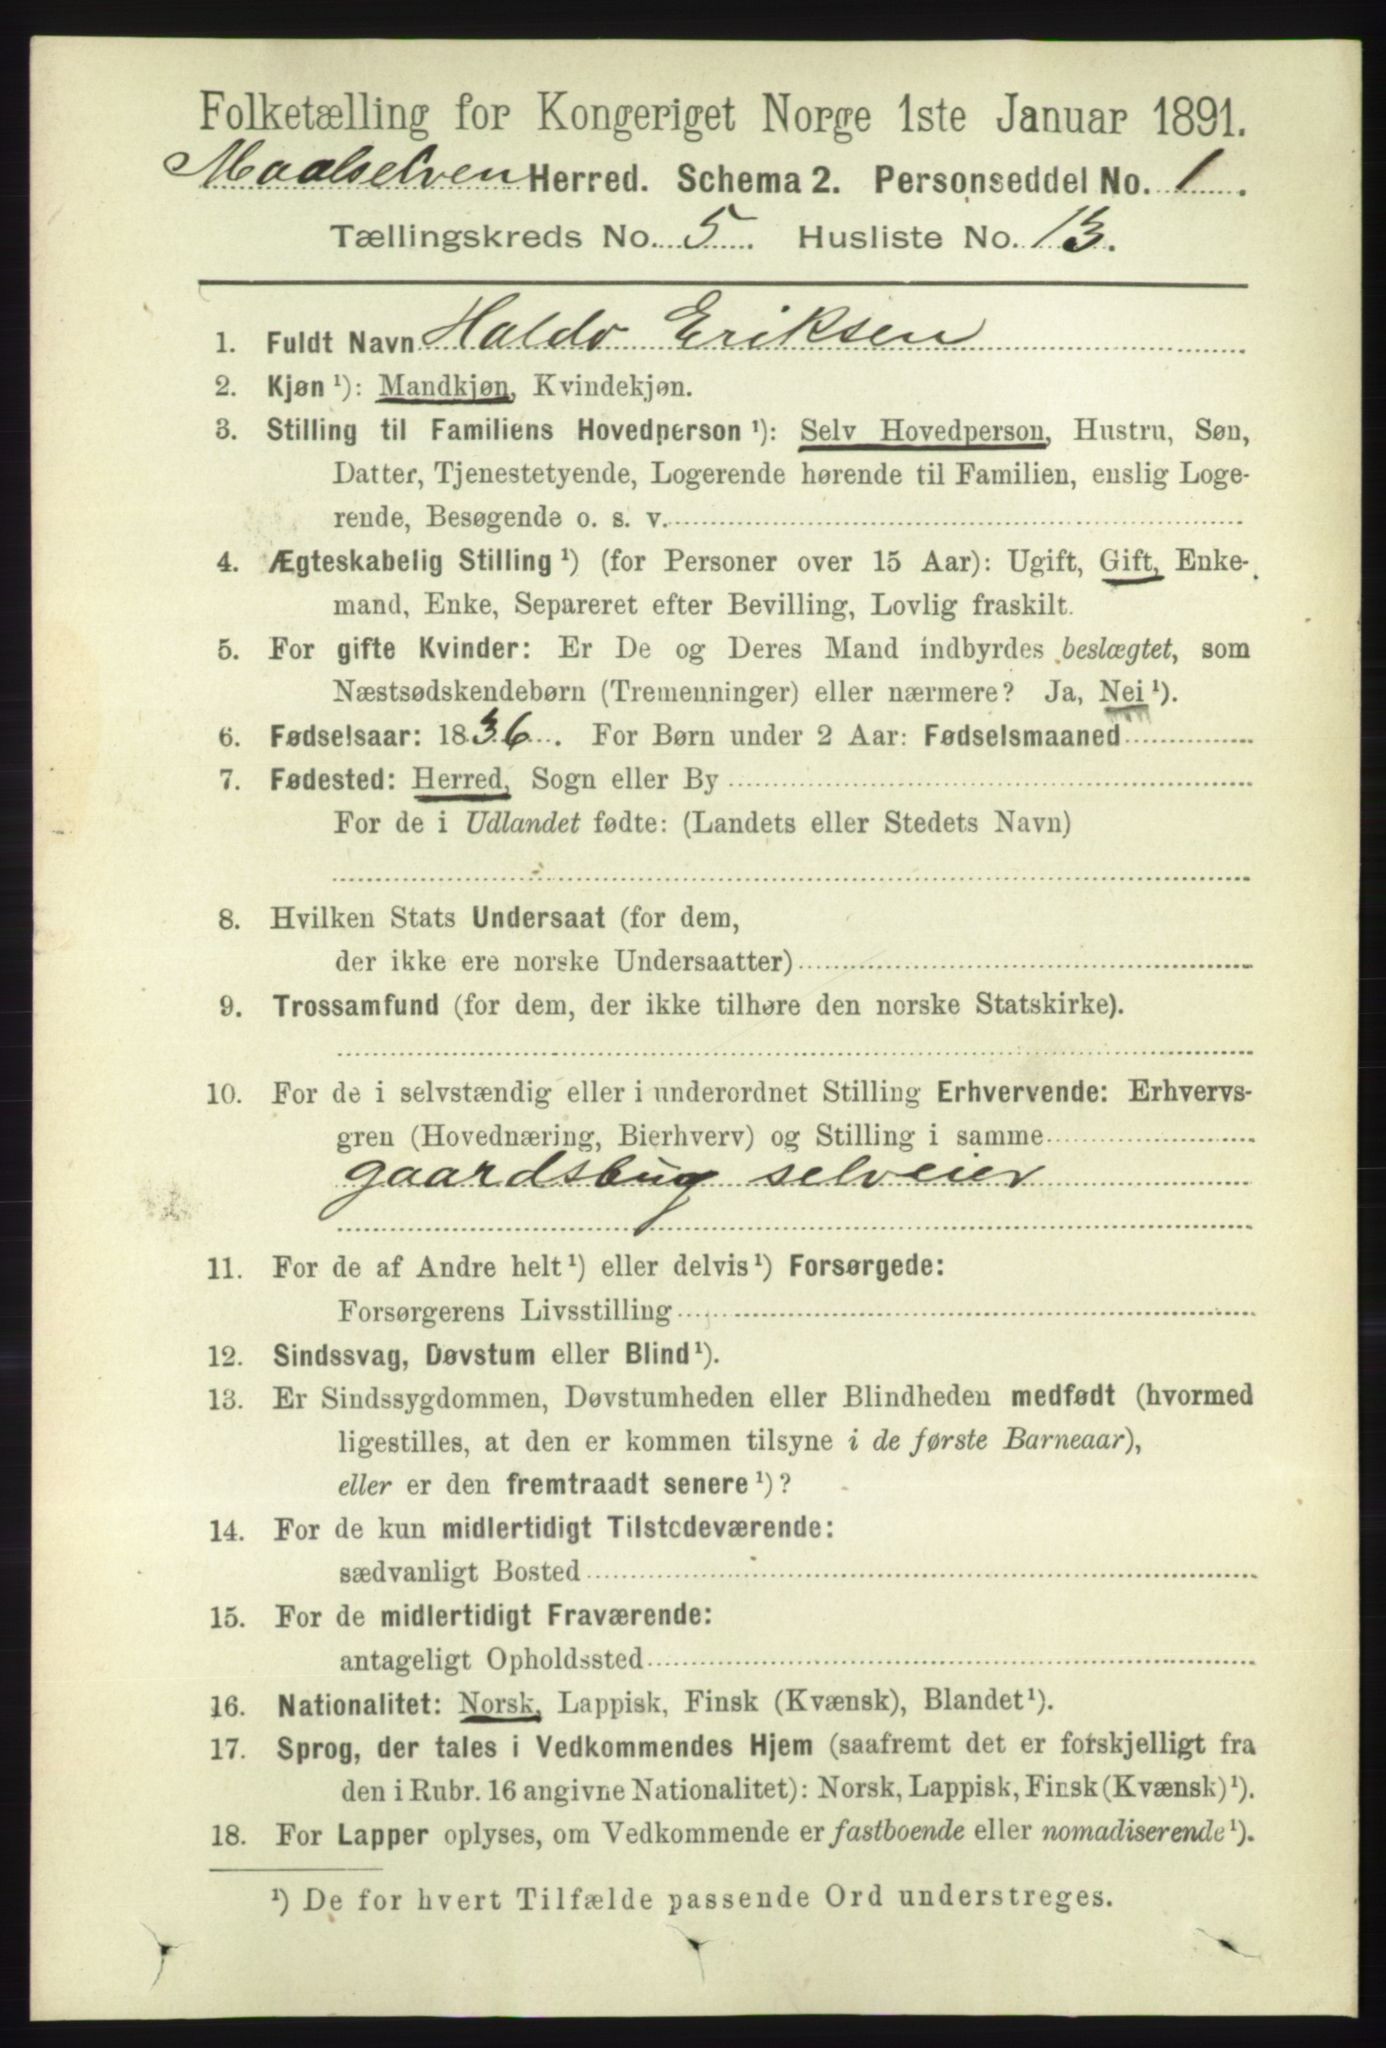 Folketælling for Kongeriget Norge 1ste Januar 1891.
Maalselven Herred. Schema 2. Personseddel No. 1.
Tællingskreds No. 5. Husliste No. 13.
1. Fuldt Navn Haldo Eriksen
2. Kjøn ¹): Mandkjøn, Kvindekjøn.
3. Stilling til Familiens Hovedperson ¹): Selv Hovedperson, Hustru, Søn,
Datter, Tjenestetyende, Logerende hørende til Familien, enslig Loge-
rende, Besøgende o. s. v.
4. Ægteskabelig Stilling ¹) (for Personer over 15 Aar): Ugift, Gift, Enke-
mand, Enke, Separeret efter Bevilling, Lovlig fraskilt.
5. For gifte Kvinder: Er De og Deres Mand indbyrdes beslægtet, som
Næstsødskendebørn (Tremenninger) eller nærmere? Ja, Nei ¹).
6. Fødselsaar: 1836. For Børn under 2 Aar: Fødselsmaaned
7. Fødested: Herred, Sogn eller By
For de i Udlandet fødte: (Landets eller Stedets Navn)
8. Hvilken Stats Undersaat (for dem,
der ikke ere norske Undersaatter)
9. Trossamfund (for dem, der ikke tilhøre den norske Statskirke).
10. For de i selvstændig eller i underordnet Stilling Erhvervende: Erhvervs-
gren (Hovednæring, Bierhverv) og Stilling i samme
gaardsbrug selveier
11. For de af Andre helt ¹) eller delvis ¹) Forsørgede:
Forsørgerens Livsstilling
12. Sindssvag, Døvstum eller Blind ¹).
13. Er Sindssygdommen, Døvstumheden eller Blindheden medfødt (hvormed
ligestilles, at den er kommen tilsyne i de første Barneaar),
eller er den fremtraadt senere ¹)?
14. For de kun midlertidigt Tilstedeværende:
sædvanligt Bosted
15. For de midlertidigt Fraværende:
antageligt Opholdssted
16. Nationalitet: Norsk, Lappisk, Finsk (Kvænsk), Blandet ¹).
17. Sprog, der tales i Vedkommendes Hjem (saafremt det er forskjelligt fra
den i Rubr. 16 angivne Nationalitet): Norsk, Lappisk, Finsk (Kvænsk) ¹).
18. For Lapper oplyses, om Vedkommende er fastboende eller nomadiserende ¹).
¹) De for hvert Tilfælde passende Ord understreges.